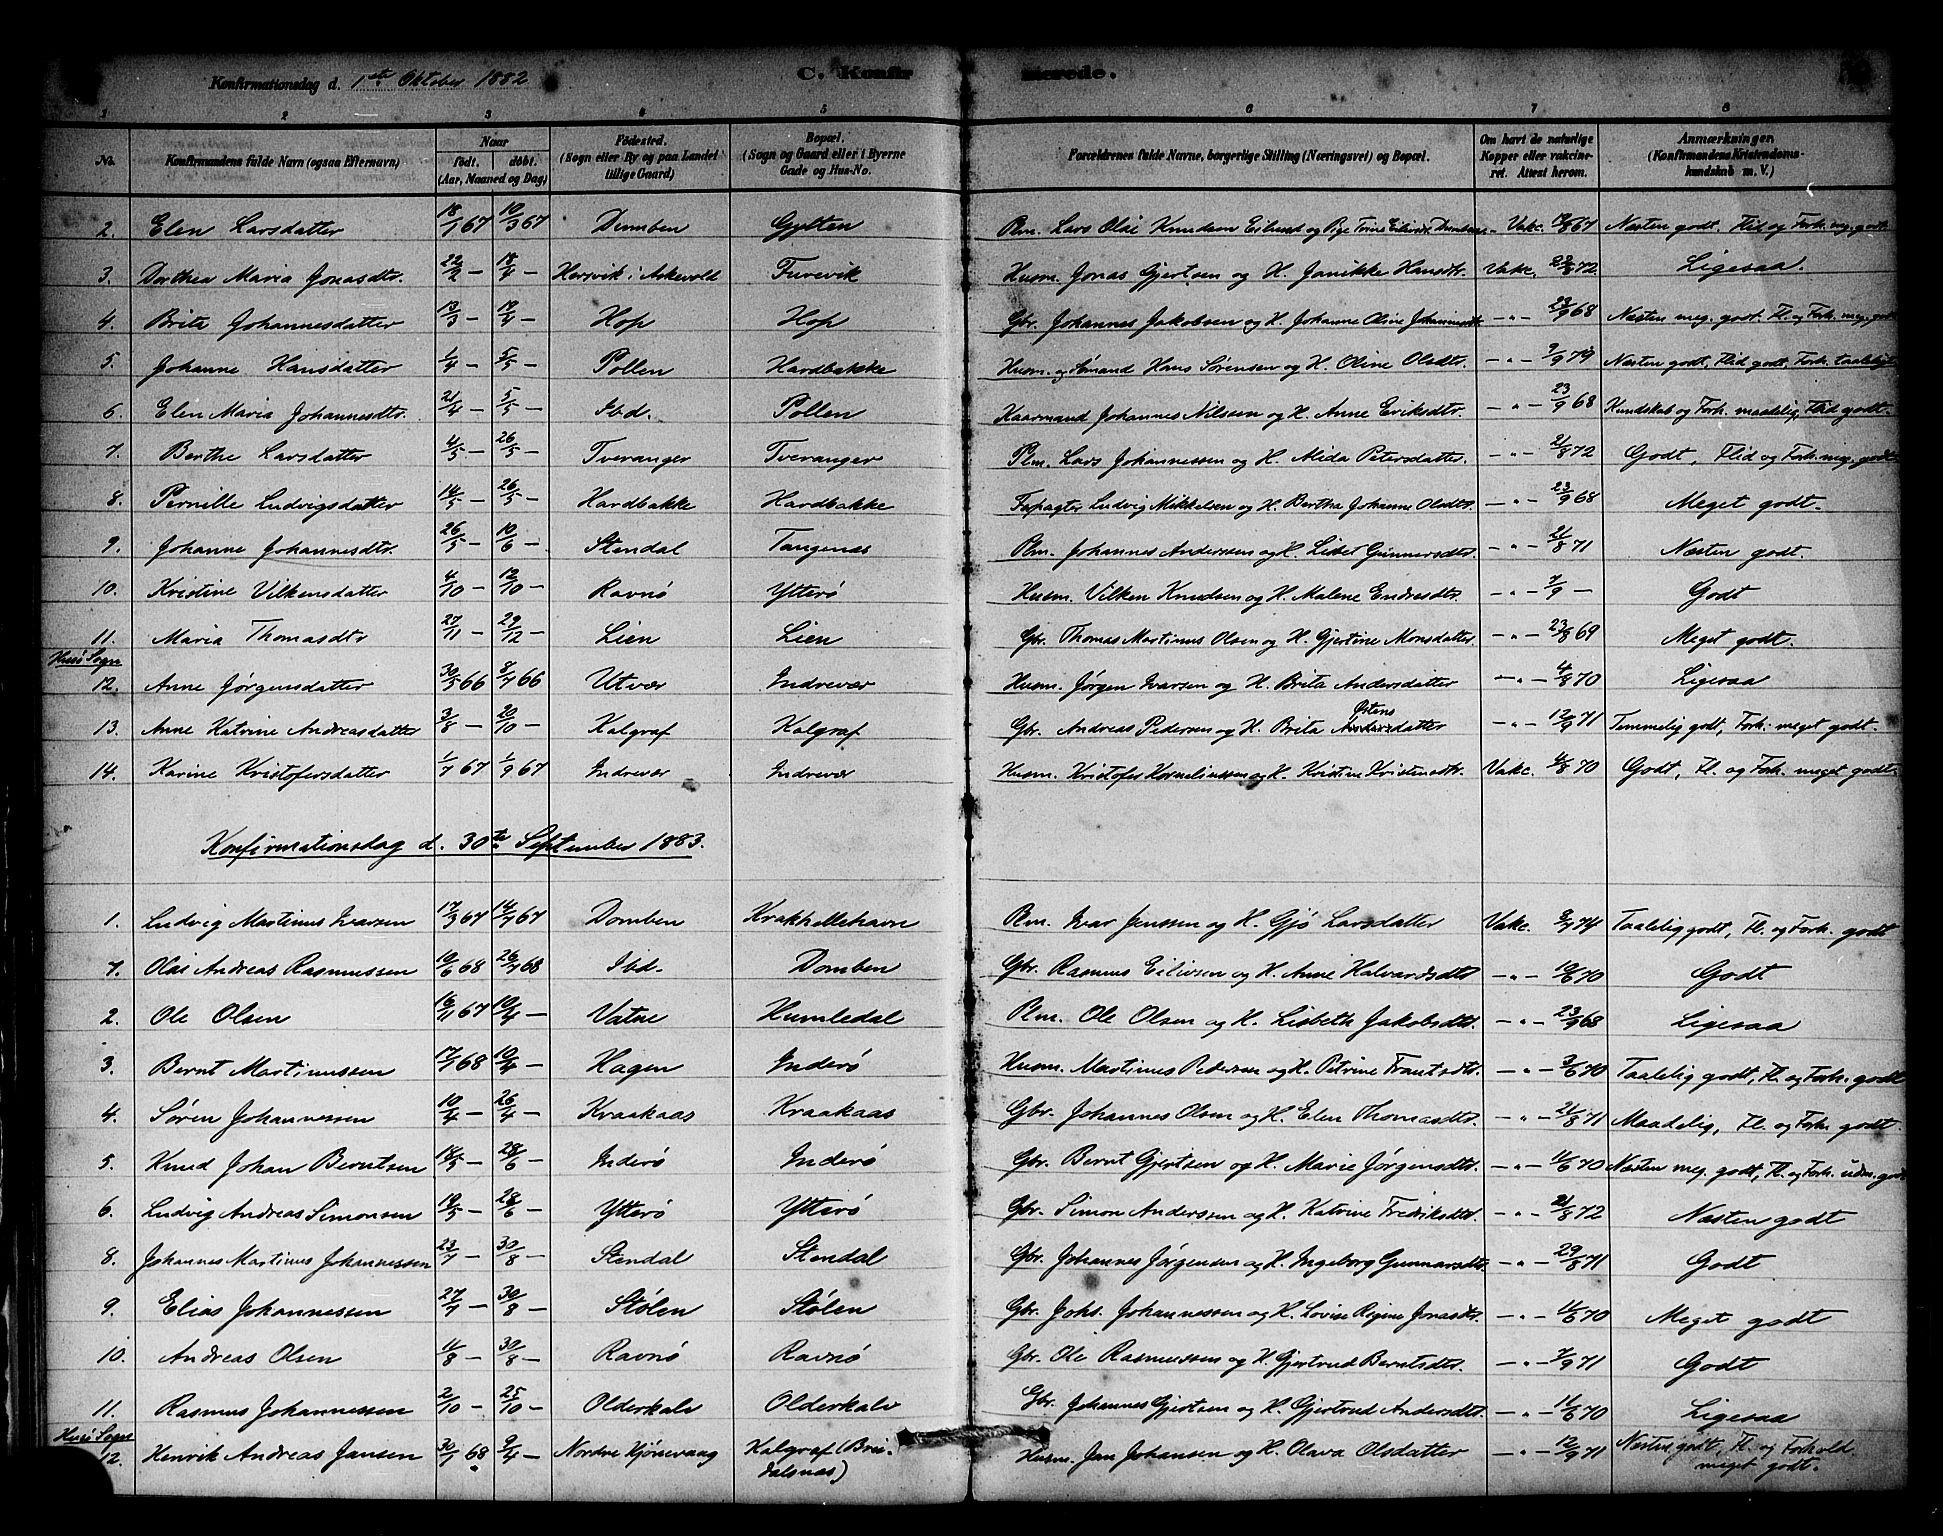 Konfirmationsdag d. 1ste Oktober 1882 C. Konfirmerede.
1 2 3 4 5 6 7 8
No. Konfirmandens fulde Navn (ogsaa Efternavn) Naar født. døbt. (Aar, Maaned og Dag) Fødested. (Sogn eller By og paa Landet tillige Gaard) Bopæl. (Sogn og Gaard eller i Byerne Gade og Hus-No. Forældrenes fulde Navne, borgerlige Stilling (Næringsvei) og Bopæl. Om havt de naturlige Kopper eller vakcineret. Attest herom. Anmærkninger. (Konfirmandens Kristendomskundskab m. V.)
2. Elen Larsdatter 18/1 67 10/3 67 Domben Gylten Plm. Lars Olai Knudsen Eilund og Pige Trine Eilertsdr. Domben - Vakc. 67 Næsten godt. Flid og Forh. meg. godt.
3. Dorthea Maria Jonasdtr. 22/2 — 18/4 — Hersvik i Askevold Furevik Husm. Jonas Gjertsen og H. Janikke Hansdtr. Vakc. 22/8 72 Ligesaa.
4. Brita Johannesdatter 13/3 — 19/4 — Hop Hop Gbr. Johannes Jakobsen og H. Johanne Oline Johannesdtr. — " — 23/9 68 Næsten meg. godt. Fl. og Forh. meg. godt
5. Johanne Hansdatter 1/4 — 5/5 — Pollen Hardbakke Husm. og Sømand Hans Sørensen og H. Oline Olsdtr. — " — 9/9 79 Næsten godt, Flid godt, Forh. taaleligt
6. Elen Maria Johannesdtr. 21/4 — 5/5 — Ibd. Pollen Kaarmand Johannes Nilssen og H. Anne Eriksdtr. — " — 23/9 68 Kundskab og Forh. maadelig, Flid godt.
7. Berthe Larsdatter 4/5 — 26/5 — Tveranger Tveranger Plm. Lars Johannessen og H. Alida Petersdatter. — " — 21/8 72 Godt, Flid og Forh. meg. godt
8. Pernille Ludvigsdatter 14/5 — 26/5 — Hardbakke Hardbakke Fopagter Ludvig Mikkelsen og H. Bertha Johanne Olsdtr. — " — 23/9 68 Meget godt.
9. Johanne Johannesdtr. 26/5 — 10/6 — Stendal Tangenæs Plm. Johannes Anderssen og H. Lisbet Gunnarsdtr. — " — 21/8 71 Næsten godt.
10. Kristine Vilkensdatter 4/10 — 12/10 — Ravnø Ytterø Husm. Vilken Knudsen og H. Malene Endresdtr. — " — 7/9 — Godt
11. Maria Thomasdtr 27/11 — 29/12 — Lien Lien Gbr. Thomas Martinus Olsen og H. Gjertine Monsdatter — " — 23/8 69 Meget godt.
Husø Sogn
12. Anne Jørgensdatter 30/5 66 8/7 66 Utvær Indrevær Husm. Jørgen Ivarsen og H. Brita Andersdatter — " — 4/8 70 Ligesaa
13. Anne Katrine Andreasdatter 3/8 — 20/10 — Kalgraf Kalgraf Gbr. Andreas Pedersen og H. Brita Østensdatter — " — 12/9 71 Temmelig godt, Forh. meget godt.
14. Karine Kristofersdatter 1/7 67 1/9 67 Indrevær Indrevær Husm. Kristofer Korneliussen og H. Kristine Kristensdtr. Vakc. 4/8 70 Godt, Fl. og Forh. meget godt.
Konfirmationsdag d. 30te September 1883.
1. Ludvig Martinus Ivarsen 17/3 67 14/7 67 Domben Krakhellehavn Plm. Ivar Jenssen og H. Gjø Larsdatter Vakc. 9/7 74 Taalelig godt, Fl. og Forh. godt
7. Olai Andreas Rasmussen 10/6 68 26/7 68 Ibd. Domben Gbr. Rasmus Eilivsen og H. Anne Halvardsdtr — " — 10/6 70 Godt
2. Ole Olsen 16/11 67 10/4 — Vatne Humledal Plm. Ole Olsen og H. Lisbeth Jakobsdtr. — " — 23/9 68 Ligesaa
3. Bernt Martinussen 17/1 68 10/4 — Hagen Inderø Husm. Martinus Pedersen og H. Petrine Frantsdtr. — " — 3/6 70 Taalelig godt, Fl. og Forh. godt
4. Søren Johannessen 10/4 — 26/4 — Kraakaas Kraakaas Gbr. Johannes Olsen og H. Elen Thomasdtr. — " — 21/8 71 Maadelig, Fl. og Forh. godt.
5. Knud Johan Berntsen 18/5 — 28/6 — Inderø Inderø Gbr. Bernt Gjertsen og H. Marie Jørgensdtr. — " — 11/6 70 Næsten meg. godt, Fl. og Forh. udm. godt
6. Ludvig Andreas Simonsen 19/5 — 28/6 — Ytterø Ytterø Gbr. Simon Anderssen og H. Katrine Fredriksdtr. — " — 21/8 72 Næsten godt
8. Johannes Martinus Johannessen 23/7 — 30/8 — Stendal Stendal Gbr. Johannes Jørgensen og H. Ingeborg Gunnarsdtr. — " — 29/8 71 Godt
9. Elias Johannessen 27/7 — 30/8 — Stølen Stølen Gbr. Johs. Johannessen og H. Lovise Regine Jonasdtr. — " — 11/6 70 Meget godt
10. Andreas Olsen 11/8 — 30/8 — Ravnø Ravnø Gbr. Ole Rasmussen og H. Gjertrud Berntsdtr. — " — 7/9 71 Godt
11. Rasmus Johannessen 2/10 — 25/10 — Olderkalv Olderkalv Gbr. Johannes Gjertsen og H. Gjertrud Andersdtr. — " — 11/6 70 Ligesaa
Husø Sogn
12. Henrik Andreas Jansen 30/1 68 9/4 — Nordre Hjønevaag Kalgraf (Breidalsnæs) Husm. Jan Johansen og H. Olava Olsdatter — " — 12/9 71 Næsten godt, Fl. og Forhold meget godt.